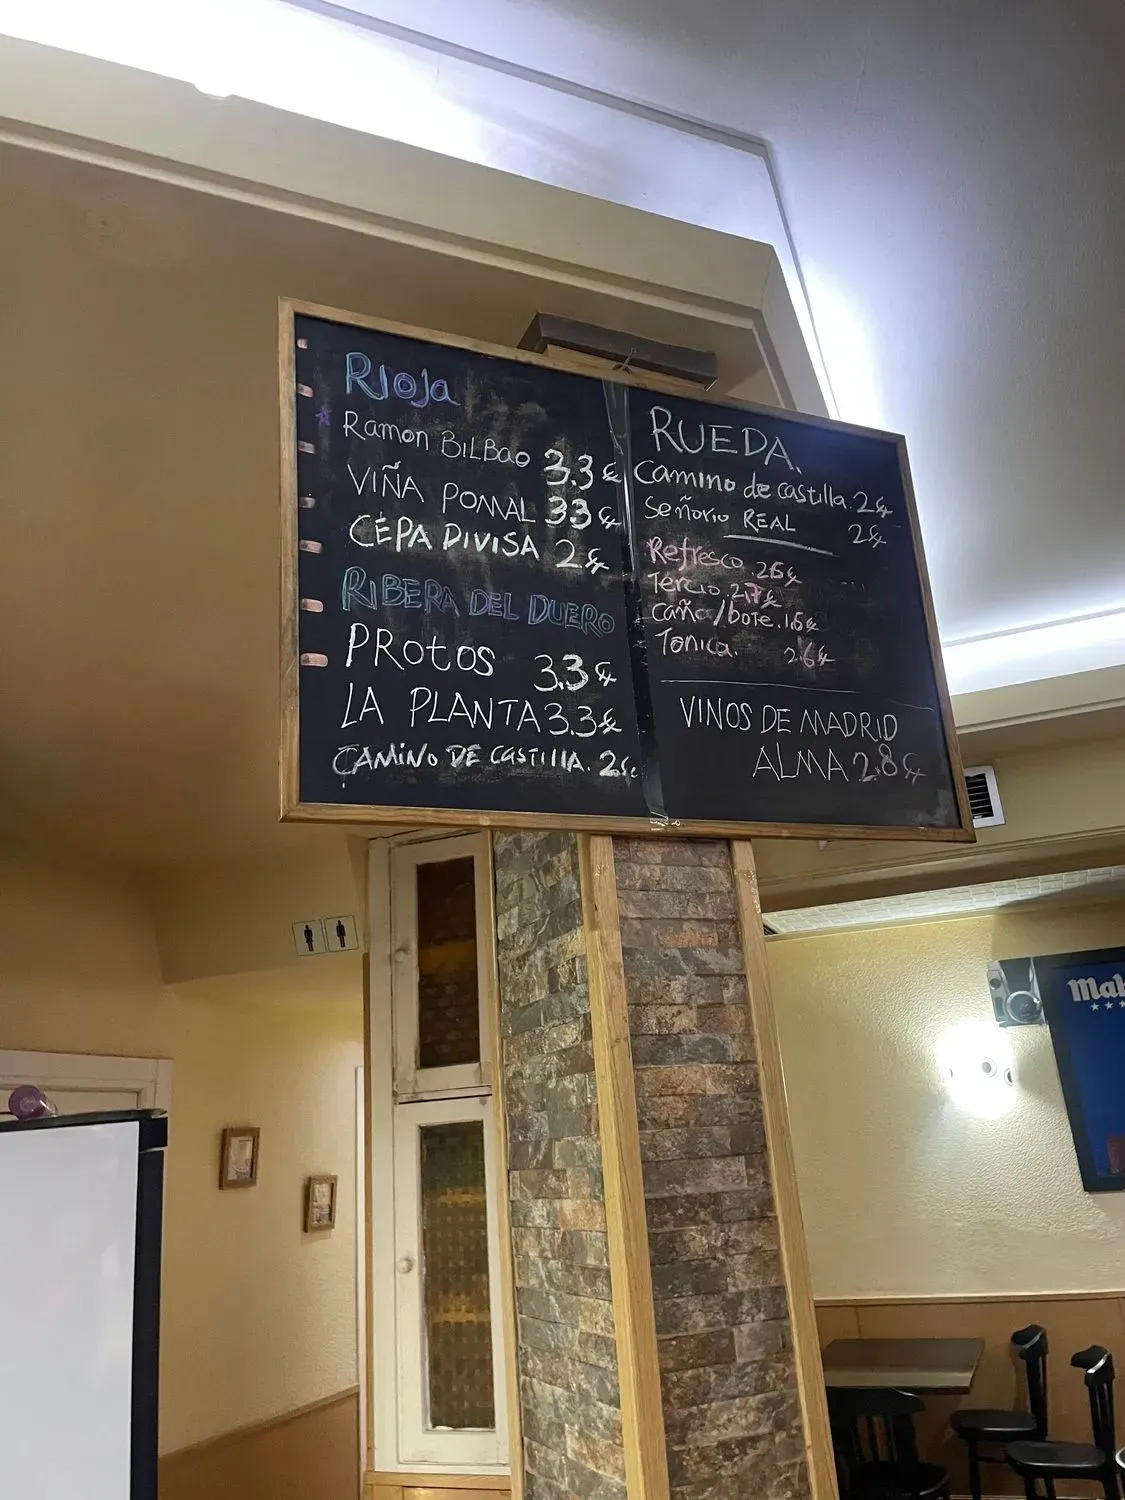 Rioja
Ramon BILBao 3.3€
VIÑA POMAL 33€
CEPA DIVISA 2€
RIBERA DEL DUERO
PROTOS 3.3€
LA PLANTA 3.3€
CAMINO DE CASTILLA. 2€
RUEDA.
Camino de castilla. 2€
Señorio REAL 2€
Refresco. 2.6€
Tercio. 2.7€
caña/bote. 1.6€
Tonica. 2.6€
VINOS DE MADRID
ALMA 2.8€
Mah